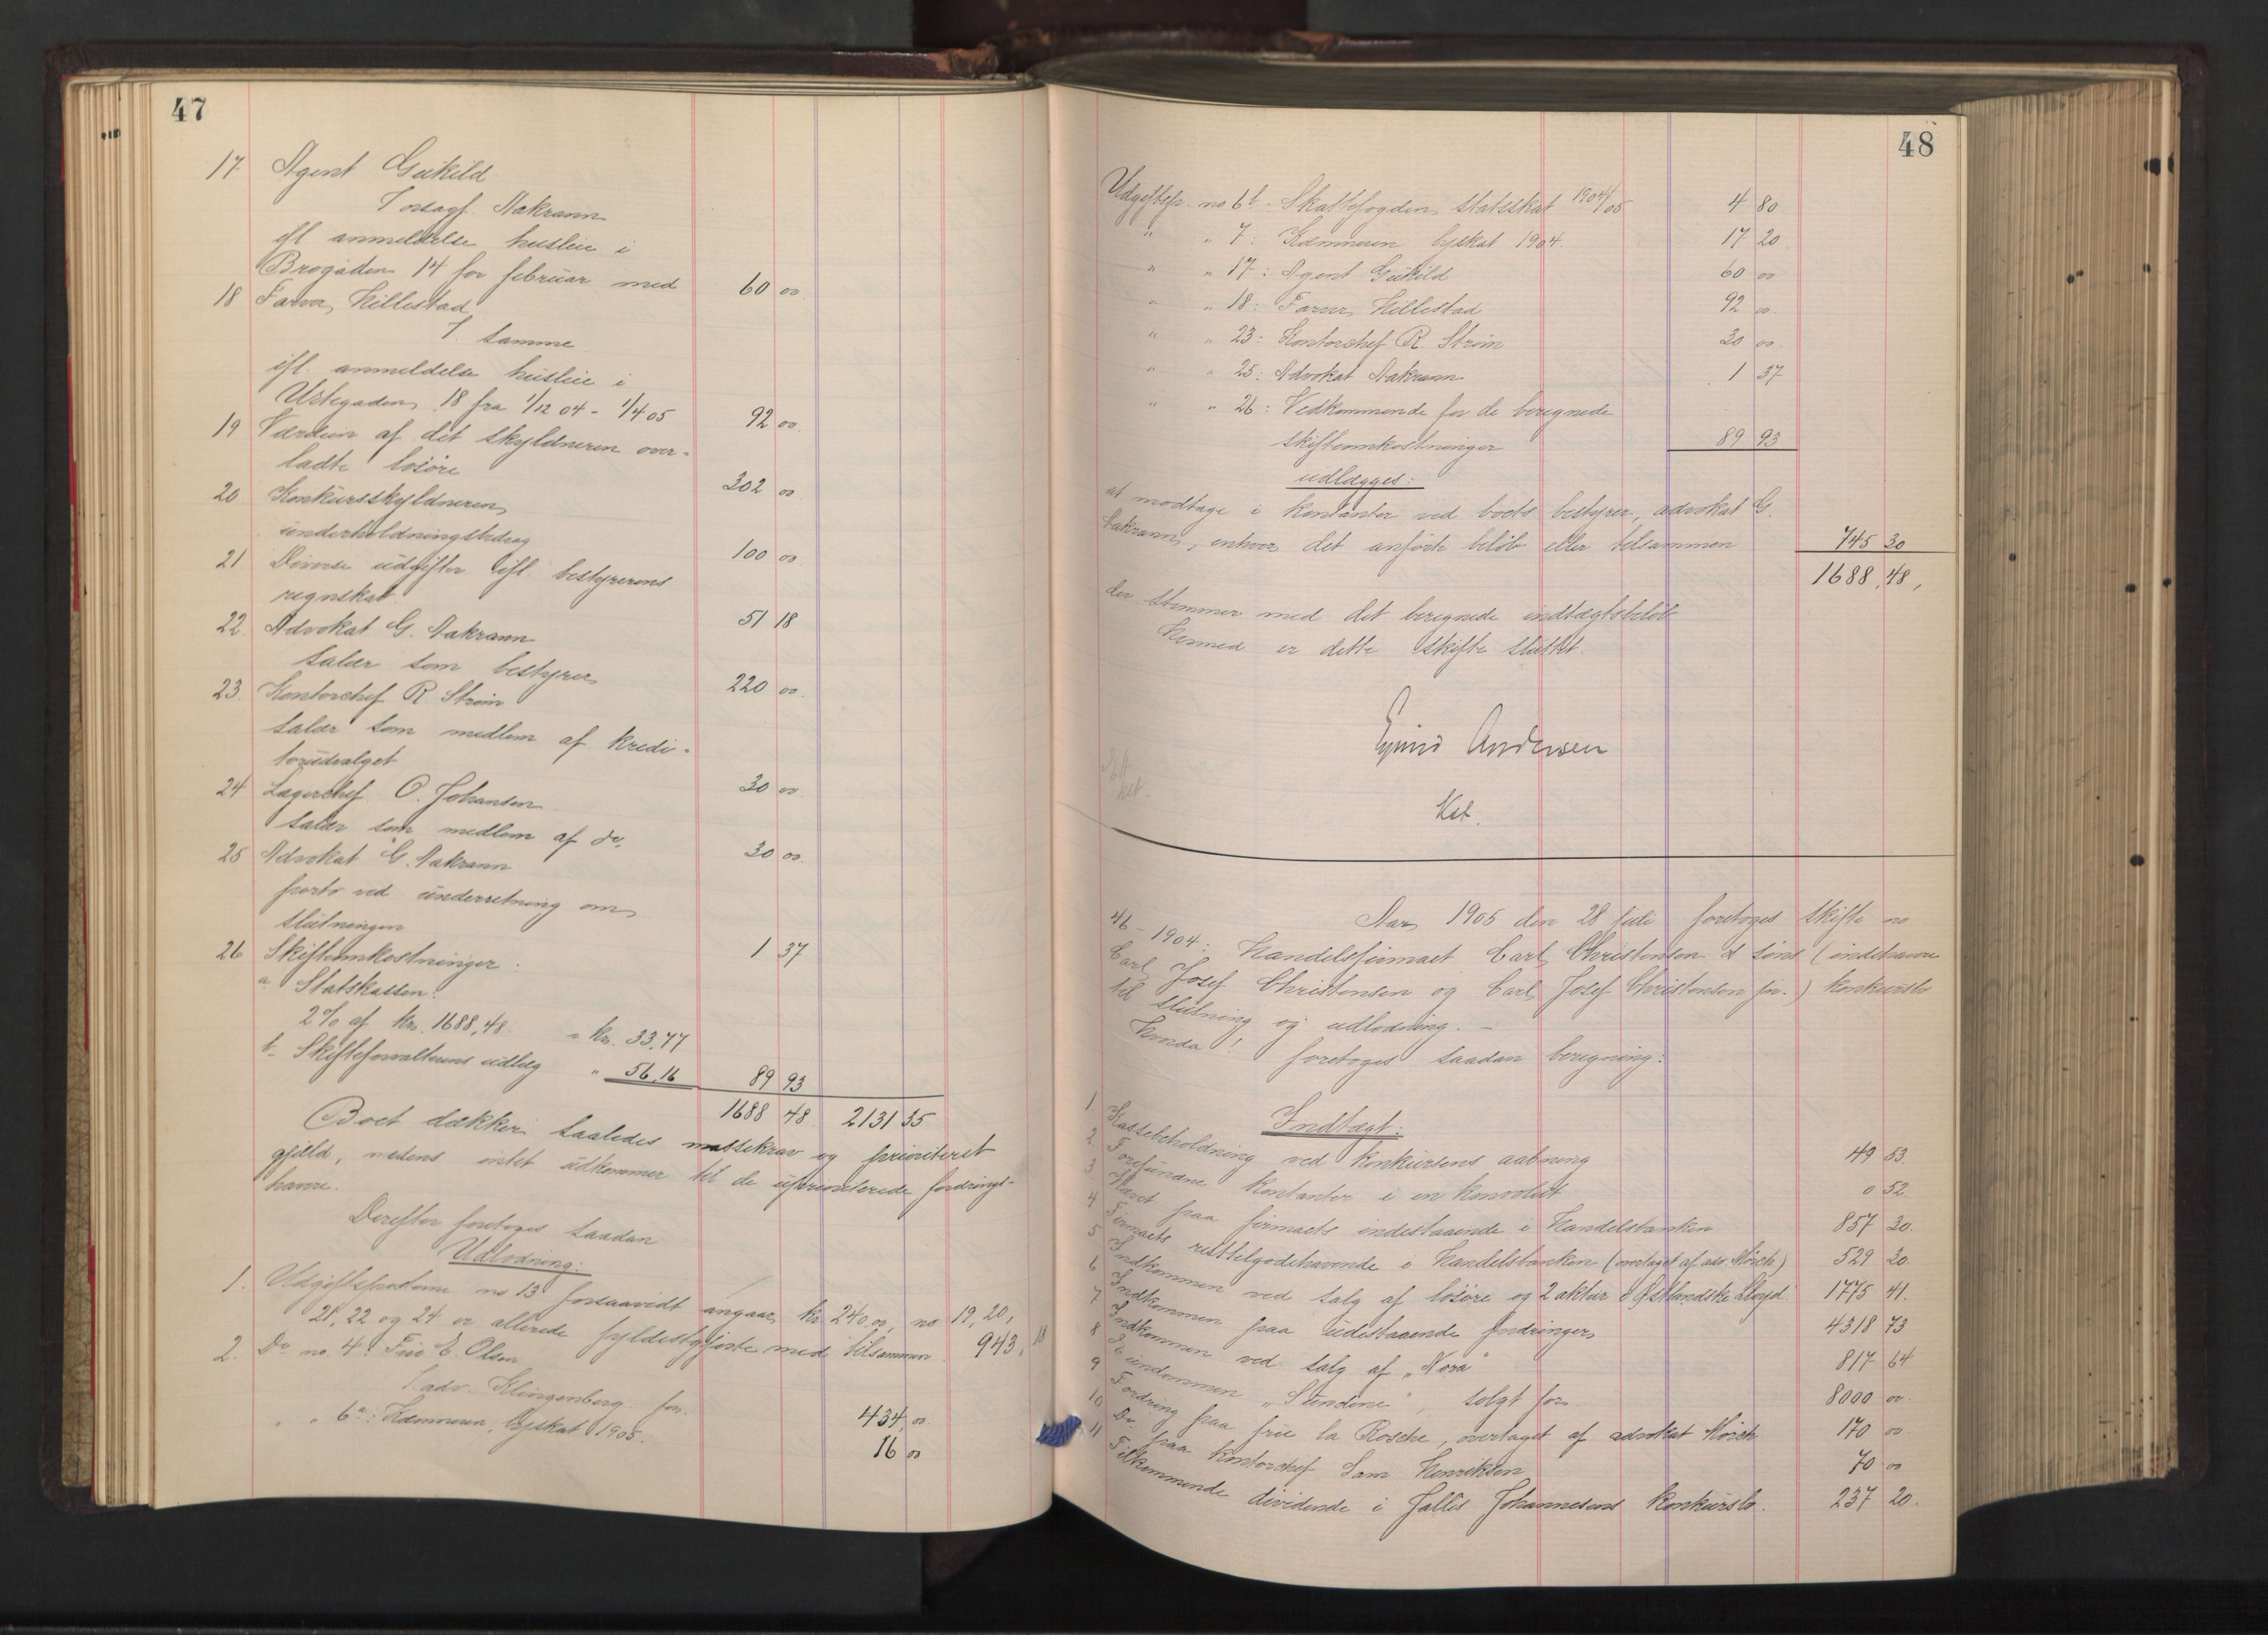 47
17 Agent Gukild
V. osagf. Nakrann
ifl anmeldelse husleie i
Brogaden 14 for februar med 60 00
18 Farver Hillestad
V. samme
ifl. anmeldelse husleie i
Urtegaden 18 fra 1/12 04 - 1/4 05 92 00
19 Værdien af det skyldneren over-
ladte løsøre 302 00
20 Konkursskyldneren
underholdningsbidrag 100 00
21 Diverse udgifter ifl. bestyrerens
regnskab 51 18
22 Advokat G. Nakrann
salær som bestyrer 220 00
23 Kontorchef R. Strøm
salær som medlem af kredi-
torudvalget 30 00
24 Lagerchef O. Johansen
salær som medlem af do. 30 00
25 Advokat G. Nakrann
porto ved underretning om
slutningen 1 37
26 Skifteomkostninger:
a Statskassen:
2% af kr. 1688,48 - kr. 33,77
b- Skifteforvalterens udlæg " 56,16 89 93
1688 48 2131 35
Boet dækker saaledes massekrav og prioriteret
gjæld, medens intet udkommer til de uprioriterede fordrings-
havere.
Derefter foretoges saadan
Udlodning:
1. Udgiftsposterne no 13 forsaavidt angaar kr 240,00, no 19, 20,
21, 22 og 24 er allerede fyldestgjorte med tilsammen 943,18
2. Do no. 4: Frue E. Olsen
V. adv. Klingenberg. for. 434,00
" " 6a: Kæmneren, byskat 1905. 16 00
48
Udgiftsp. no 6b: Skattefogden, statsskat 1904/05 4 80
" " 7: Kæmneren byskat 1904. 17 20
" " 17: Agent Gukild 60 00
" " 18: Farver Hillestad 92 00
" " 23: Kontorchef R. Strøm 30 00
" " 25: Advokat Nakrann 1 37
" " 26: Vedkommende for de beregnede
skifteomkostninger 89 93
udlægges:
at modtage i kontanter ved boets bestyrer, advokat G.
Nakrann, enhver det anførte beløb eller tilsammen 745 30
1688,48,
der stemmer med det beregnede indtægtsbeløb
Hermed er dette skifte sluttet.
Eyvind Andersen
Kst.
Aar 1905 den 28 juli foretoges skifte no
46-1904: Handelsfirmaet Carl Christensen & søns (indehavere
Carl Josef Christensen og Carl Josef Christensen jun.) konkursbo
til slutning og udlodning. -
Hvorda! foretoges saadan beregning:
Indtægt:
1 Kassebeholdning ved konkursens aabning 49 53.
2 Forefundne kontanter i en konvolut 0 52.
3 Hævet paa firmaets indestaaende i Handelsbanken 857 30.
4 Firmaets resttilgodehavende i Handelsbanken (overtaget af adv. Mörch) 529 20
5 Indkommen ved salg af løsøre og 2 aktier i Østlandske Lloyd 1775 41.
6 Indkommen paa udestaaende fordringer 4318 73
7 Indkommen ved salg af "Nora" 817 64
8 Eiendommen "Stendene", solgt for 8000 00.
9. Fordring paa frue la Rosche, overtaget af advokat Mörch 170 00
10 Do. paa kontorchef Sam Henriksen 70 00
11 Tilkommende dividende i Jallis Johannesens konkursbo. 237 20.